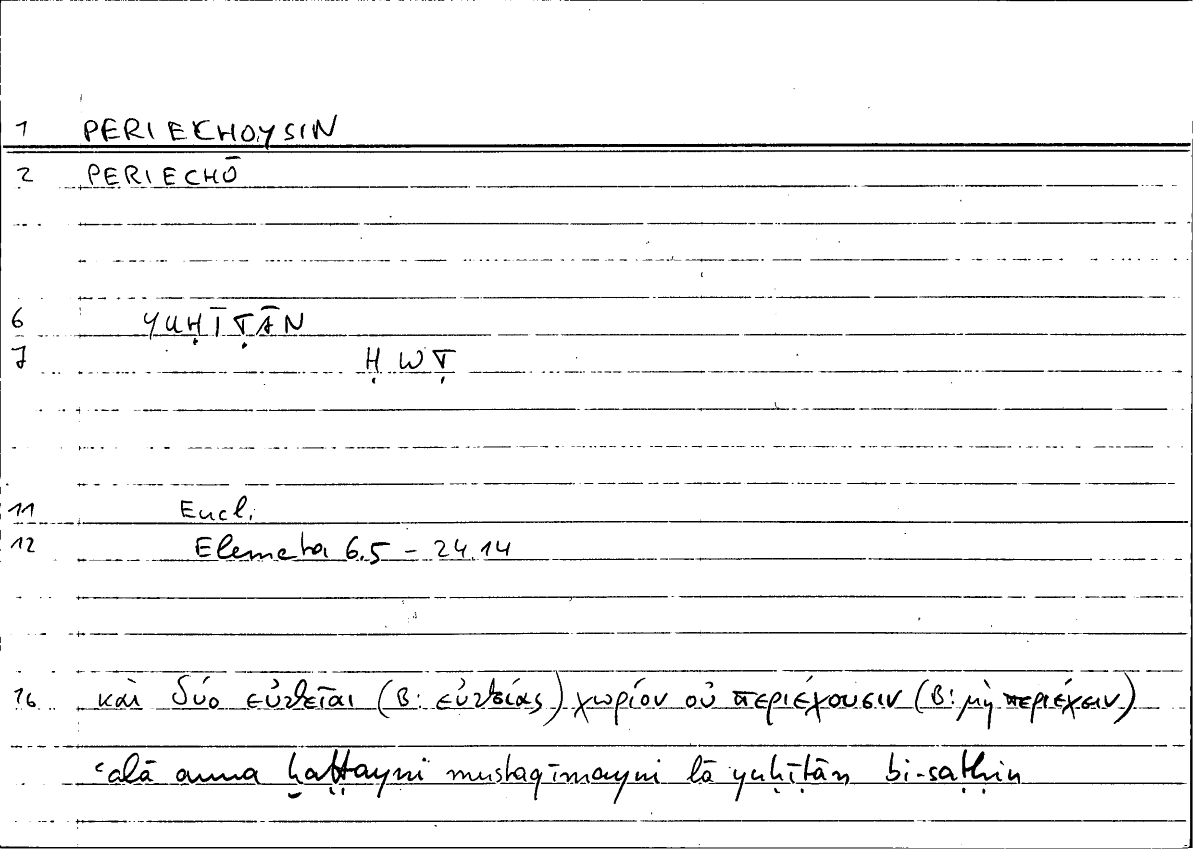 1 PERIECHOYSIN
2 PERIECHŌ
6 YUḤĪṬĀN
7 Ḥ W Ṭ
11 Eucl.
12 Elementa 6.5 – 24.14
16 καὶ δύο εὐθεῖαι (B: εὐθείας) χωρίον οὐ περιέχουσιν (B: μὴ περιέχειν)
ʿalā anna ḫaṭṭayni mustaqīmayni lā yuḥīṭān bi-saṭḥin